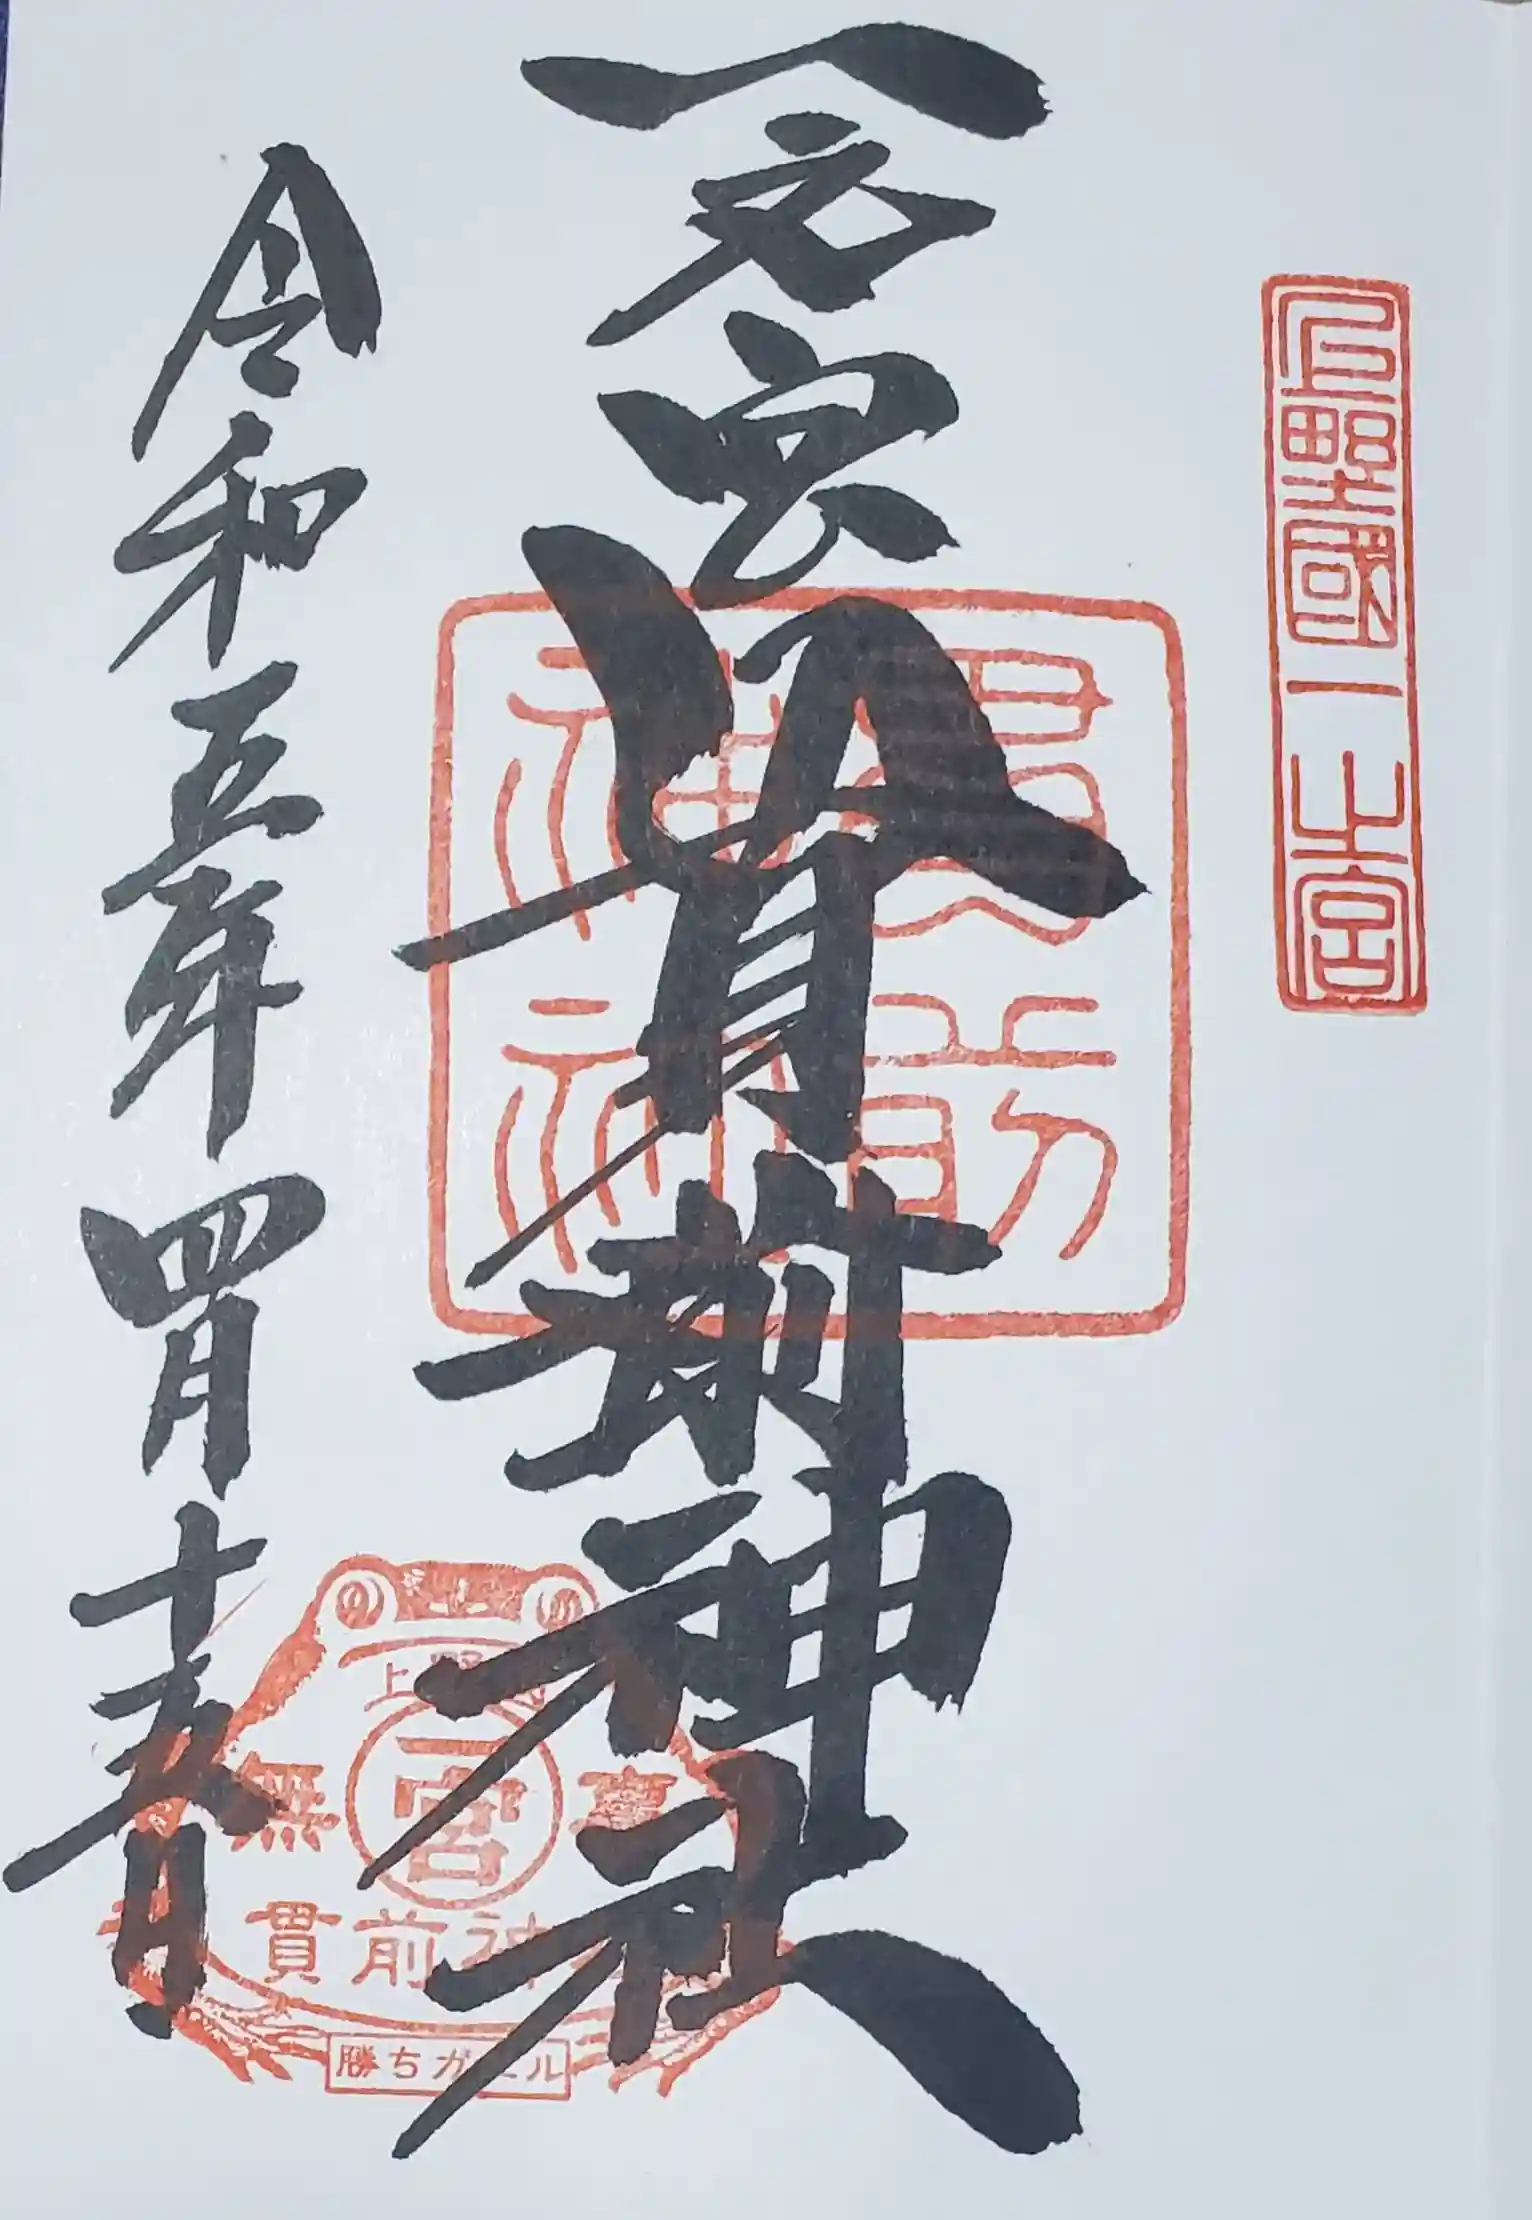 上野國一之宮
一之宮貫前神社
貫前
神社
令和五年四月十五日
上野
一宮
無事
貫前神社
勝ちガエル